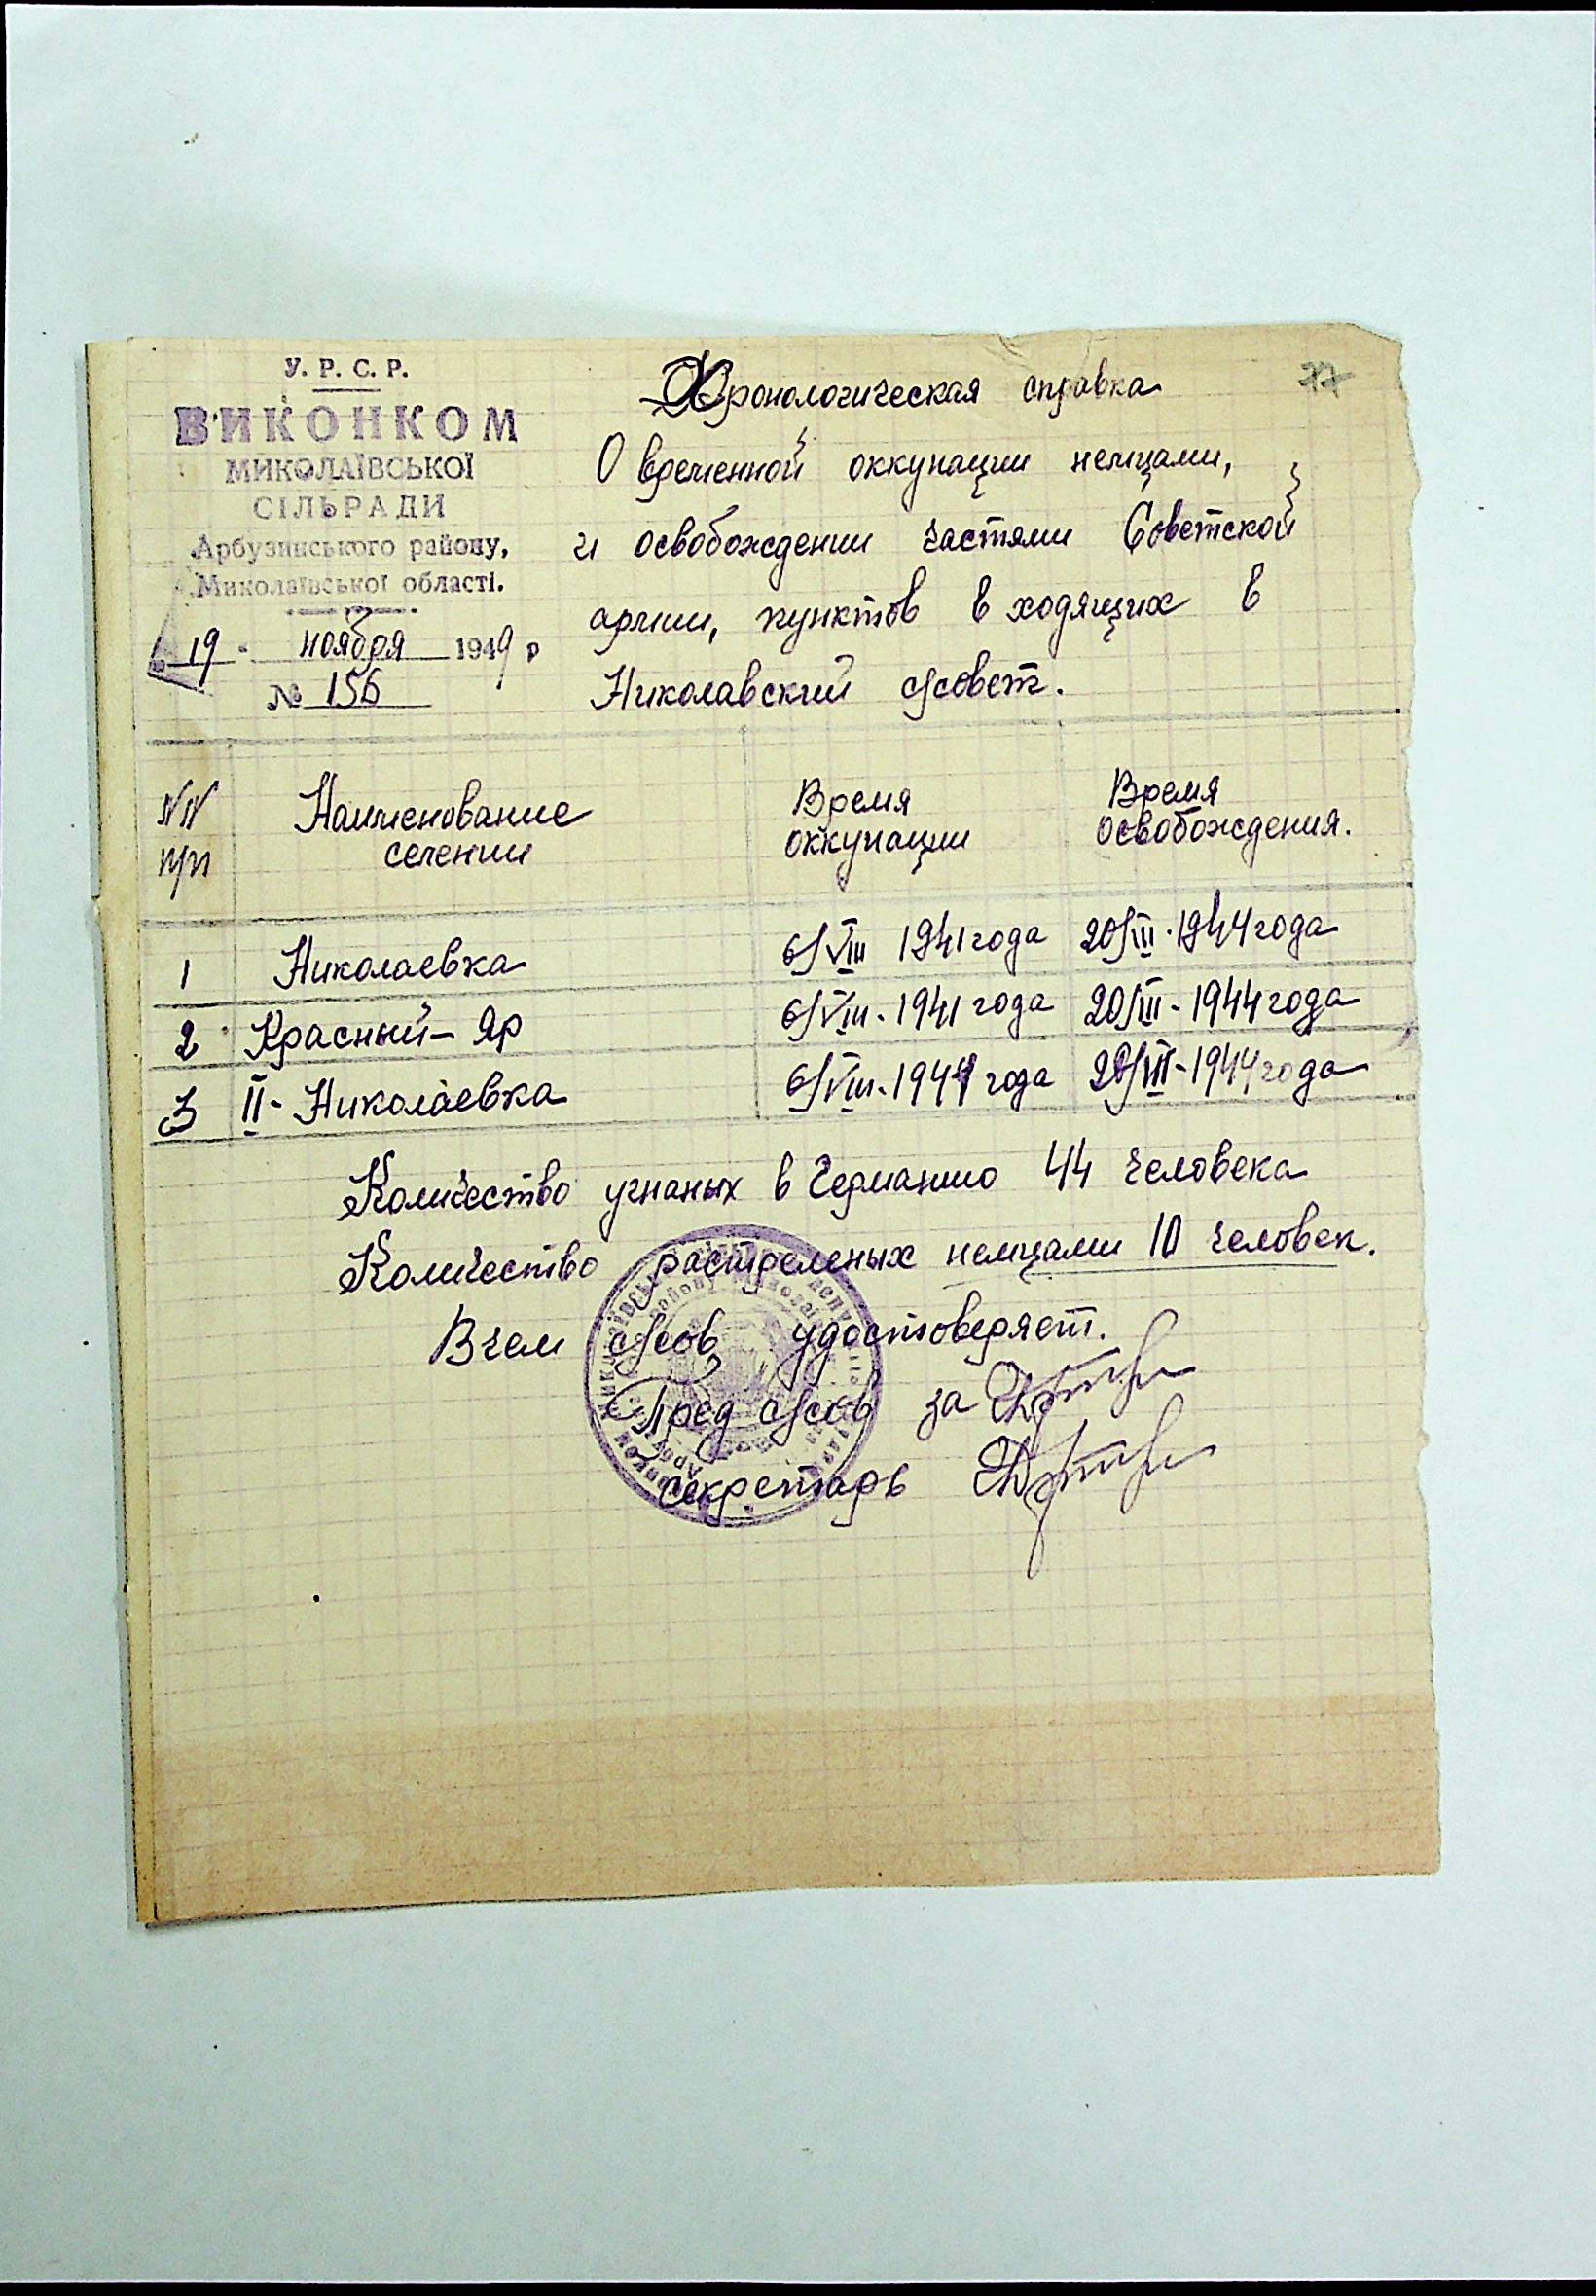 У. Р. С. Р.
ВИКОНКОМ
МИКОЛАЇВСЬКОЇ
СІЛЬРАДИ
Арбузинського району,
Миколаївської області.
19 - ноября 1949 р
№ 156
77
Хронологическая справка
О временной оккупации немцами,
и освобождении частями Советской
армии, пунктов в ходящих в
Николавский с/совет.
NN п/п Наименование селении Время оккупации Время освобождения.
1 Николаевка 6/VIII 1941 года 20/III · 1944 года
2 Красный - Яр 6/VIII - 1941 года 20/III - 1944 года
3 II - Николаевка 6/VIII - 1941 года 20/III - 1944 года
Количество угнаных в Германию 44 человека
Количество растреленых немцами 10 человек.
В чем с/сов, удостоверяет.
Пред с/сов за
секретарь